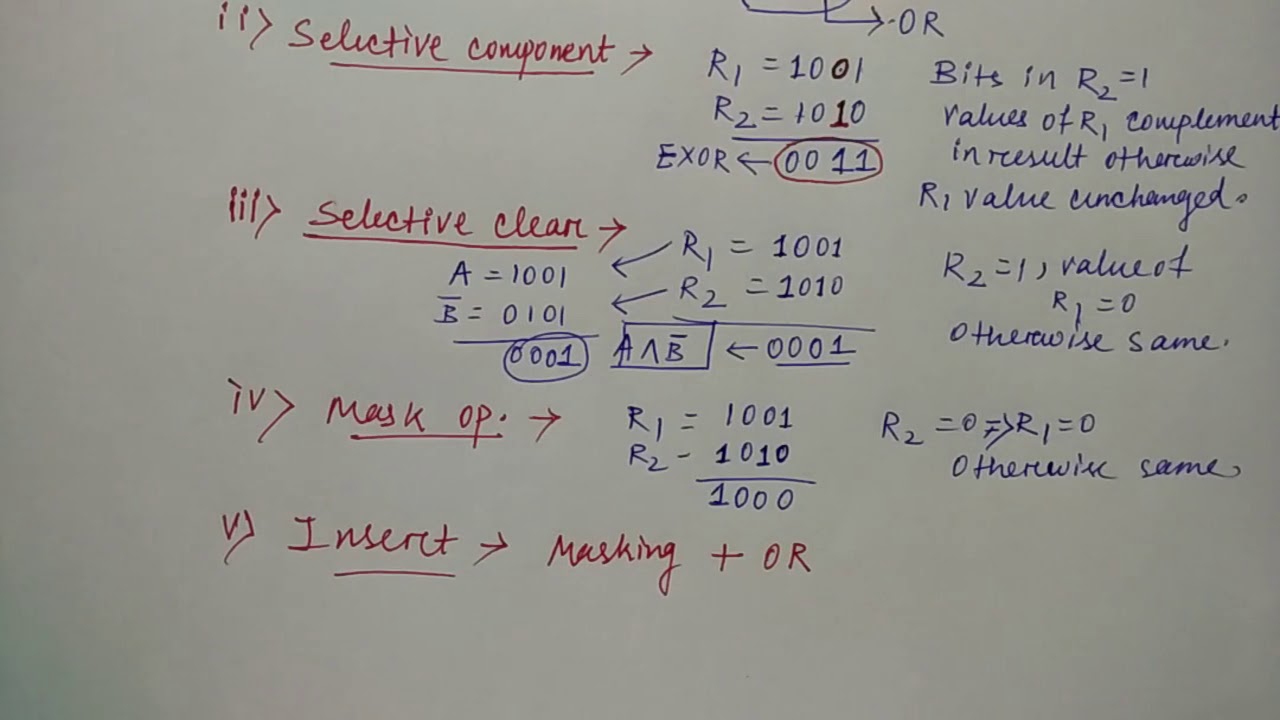 → OR
ii> Selective component →
R1 = 1001
R2 = 1010
EXOR ← 0011
Bits in R2 = 1
values of R1 complement
in result otherwise
R1 value unchanged.
iii> Selective clear →
R1 = 1001
R2 = 1010
A∧B̅ ← 0001
A = 1001
B̅ = 0101
0001
R2 = 1, value of
R1 = 0
otherwise same.
iv> Mask op. →
R1 = 1001
R2 - 1010
1000
R2 = 0 => R1 = 0
otherwise same.
v> Insert → Masking + OR